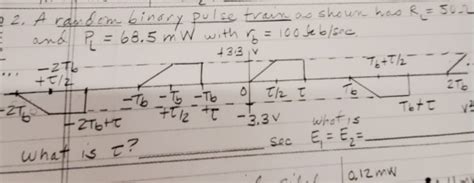 2. A random binary pulse train as shown has R_L = 50 Ω
and P_L = 68.5 mW with r_b = 100
+3.3 V
-2T_b +τ/2
T_b+τ/2
-2T_b -2T_b+τ -T_b -T_b +τ/2 -T_b +τ 0 τ/2 τ T_b T_b+τ 2T_b
-3.3V
what is
what is τ? ________ sec E_1 = E_2 =
0,12 mW